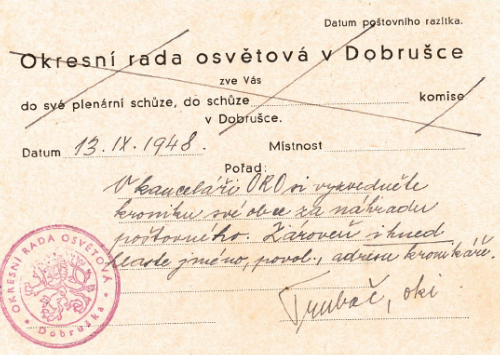 Datum poštovního razítka.
Okresní rada osvětová v Dobrušce
zve Vás
do své plenární schůze, do schůze komise
v Dobrušce.
Datum 13. IX. 1948. Místnost
Pořad:
V kanceláři ORO si vyzvedněte
kroniku své obce za náhradu
poštovného. Zároveň ihned
hlaste jméno, povol., adresu kronikáře.
Trubač, oki
OKRESNÍ RADA OSVĚTOVÁ
Dobruška